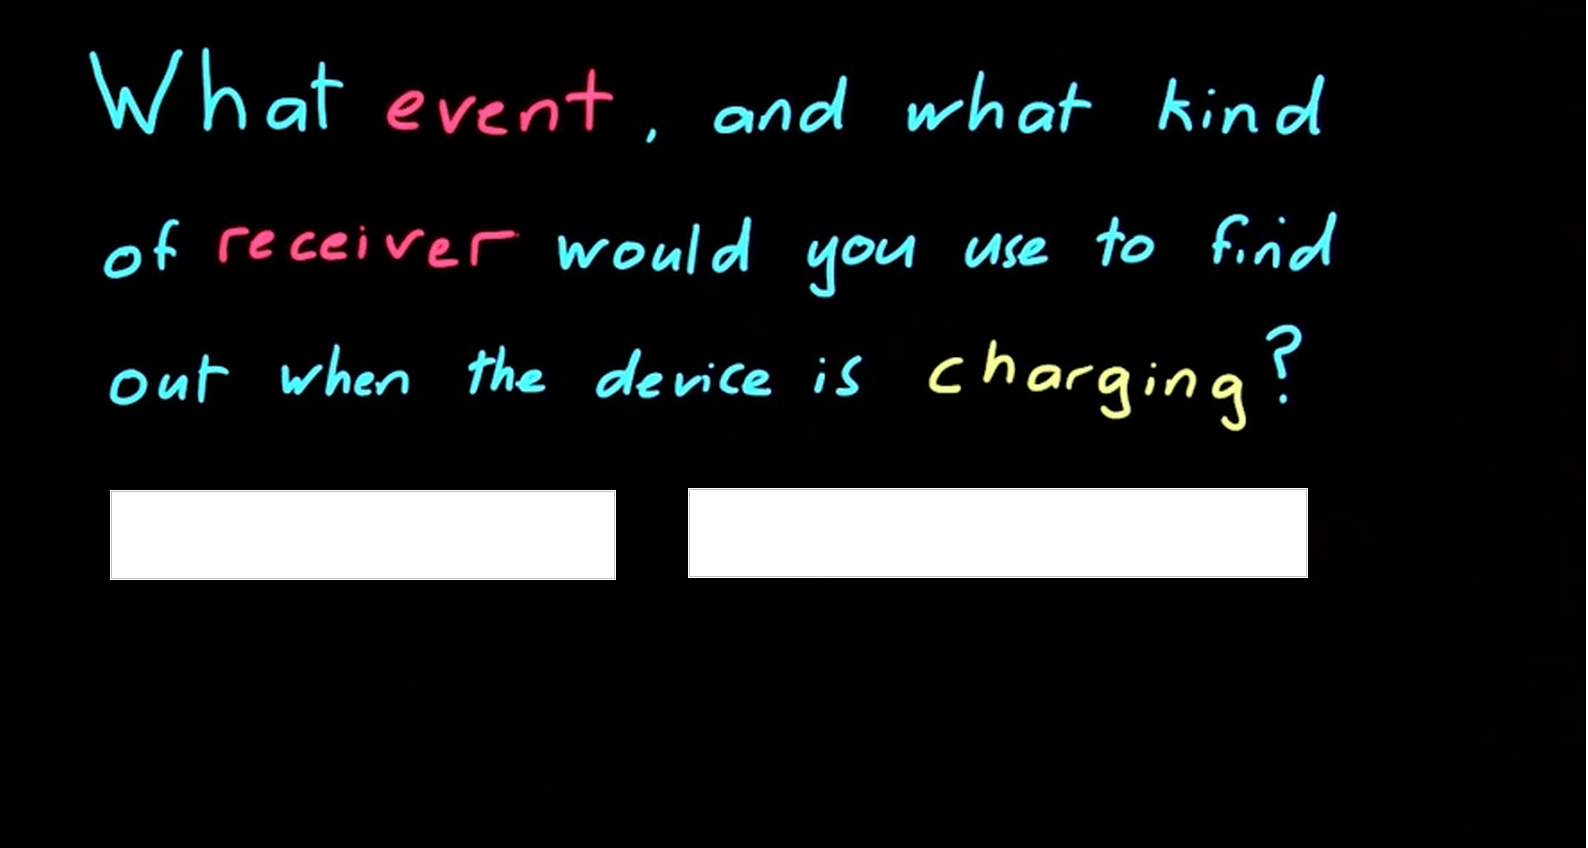 What event, and what kind
of receiver would you use to find
out when the device is charging?